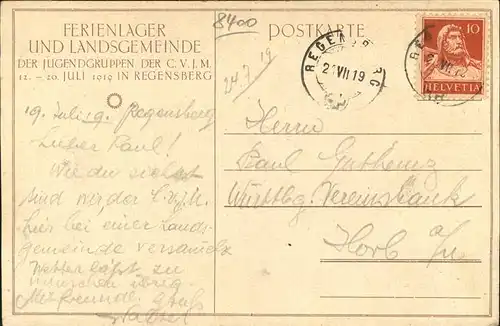 FERIENLAGER
UND LANDSGEMEINDE
DER JUGENDGRUPPEN DER C.V.J.M.
12. – 20. JULI 1919 IN REGENSBERG
8400
POSTKARTE
24.7.19
REGENSBERG
21.VII.19
10
HELVETIA
19. Juli 19. Regensberg
Lieber Paul!
Wie du siehst
sind wir, der C.V.J.M.
hier bei einer Lands-
gemeinde versammelt
Wetter läßt zu
wünschen übrig.
Mit freundl. Gruß
Herrn
Paul
Württbg. Vereinsbank
Horb a/N.